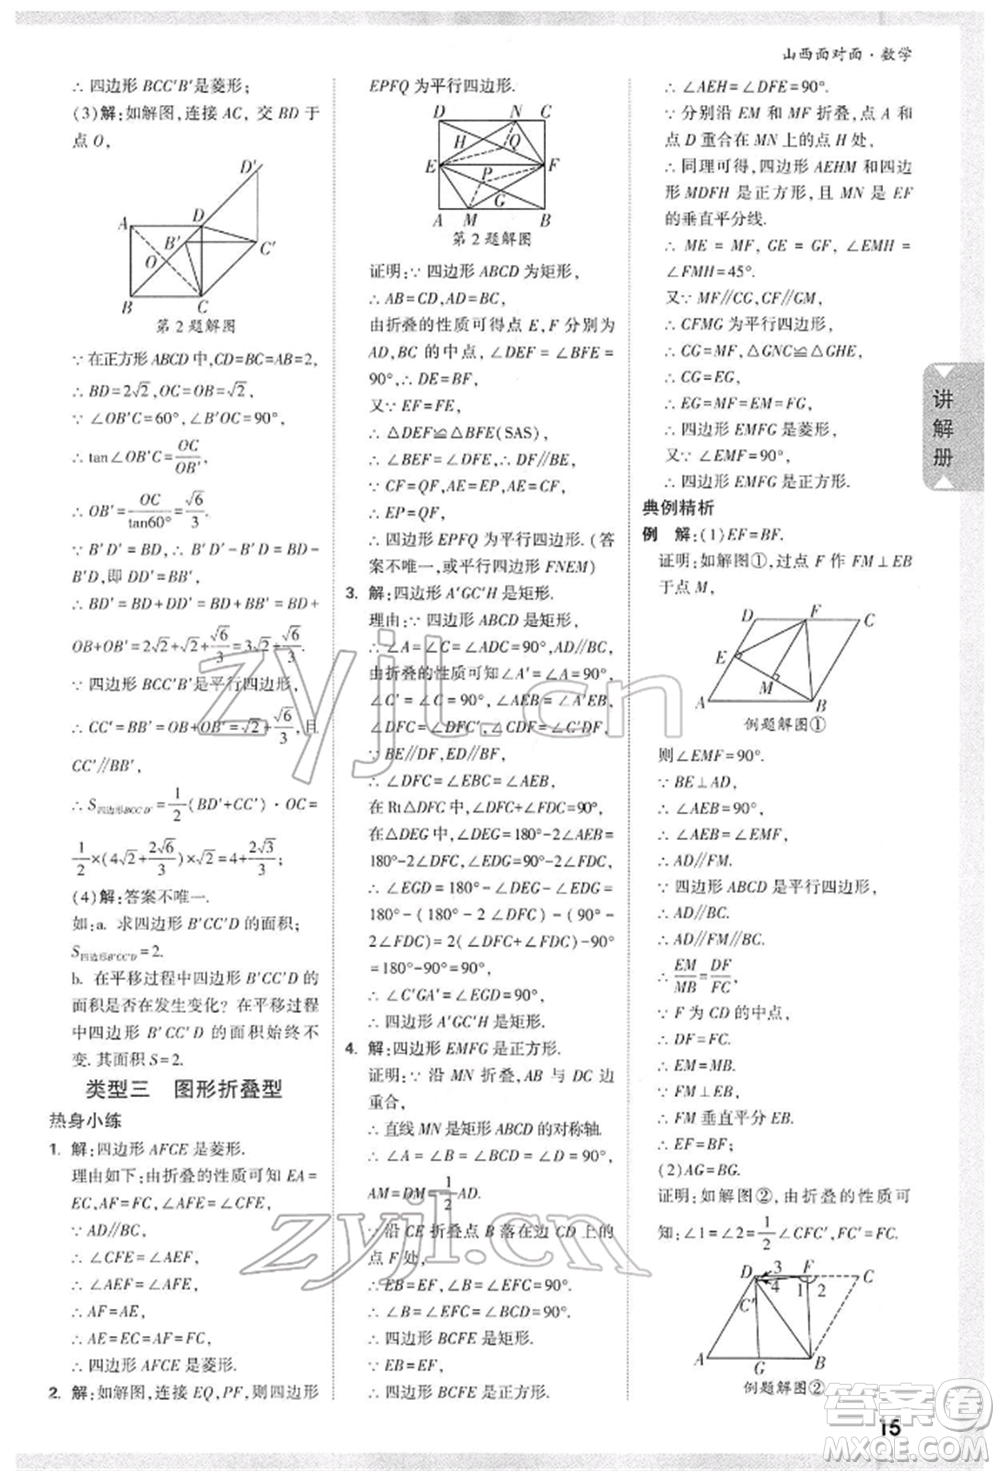 山西面对面·数学
∴四边形BCC′B′是菱形.
(3)解:如解图,连接AC,交BD于
点O,
D′
A
D
B′
C′
O
B
C
第2题解图
∵在正方形ABCD中,CD=BC=AB=2,
∴BD=2√2,OC=OB=√2,
∵∠OB′C=60°,∠B′OC=90°,
∴tan∠OB′C=OC/OB′,
∴OB′=OC/tan60°=√6/3.
∵B′D′=BD,∴B′D′-B′D=BD-
B′D,即DD′=BB′,
∴BD′=BD+DD′=BD+BB′=BD+
OB+OB′=2√2+√2+√6/3=3√2+√6/3.
∵四边形BCC′B′是平行四边形,
∴CC′=BB′=OB+OB′=√2+√6/3,且
CC′∥BB′,
∴S四边形BCC′D′=1/2(BD′+CC′)·OC=
1/2×(4√2+2√6/3)×√2=4+2√3/3;
(4)解:答案不唯一.
如:a. 求四边形B′CC′D的面积;
S四边形B′CC′D=2.
b. 在平移过程中四边形B′CC′D的
面积是否在发生变化?在平移过程
中四边形B′CC′D的面积始终不
变. 其面积S=2.
类型三 图形折叠型
热身小练
1. 解:四边形AFCE是菱形.
理由如下:由折叠的性质可知EA=
EC,AF=CF,∠AEF=∠CEF,
∵AD∥BC,
∴∠CFE=∠AEF,
∴∠AFE=∠AEF,
∴AF=AE,
∴AE=EC=AF=FC,
∴四边形AFCE是菱形.
2. 解:如解图,连接EQ,PF,则四边形
EPFQ为平行四边形.
D
N
C
H
Q
E
F
P
G
A
M
B
第2题解图
证明:∵四边形ABCD为矩形,
∴AB=CD,AD=BC,
由折叠的性质可得点E,F分别为
AD,BC的中点,∠DEF=∠BFE=
90°,∴DE=BF,
又∵EF=FE,
∴△DEF≌△BFE(SAS),
∴∠DFE=∠BEF,DF=BE,
∵CF=QF,AE=EP,CF=AE,
∴EP=QF,
∴四边形EPFQ为平行四边形.(答
案不唯一,或平行四边形FNEM)
3. 解:四边形A′GC′H是矩形.
理由:∵四边形ABCD是矩形,
∴∠A=∠C=∠ADC=90°,AD∥BC.
由折叠的性质可知∠A′=∠A=90°,
∠C′=∠C=90°,∠AEB=∠BEG,
∠DFC=∠DFC′,∠CDF=∠C′DF,
∵BE∥DF,AD∥BC,
∴∠DFC=∠EBC=∠AEB,
在Rt△DFC中,∠CDF=90°-∠DFC,
在△DEG中,∠DEG=180°-2∠AEB=
180°-2∠DFC,∠GDE=90°-2∠CDF,
∴∠EGD=180°-∠DEG-∠GDE=180°
-(180°-2∠DFC)-(90°-
2∠CDF)=2(∠DFC+∠CDF)-90°
=90°,
∴∠C′GA′=∠EGD=90°,
∴四边形A′GC′H是矩形.
4. 解:四边形EMFG是正方形.
证明:∵沿MN折叠,AB与DC边
重合,
∴直线MN是矩形ABCD的对称轴.
∴∠A=∠D=∠B=∠BCD=90°,
AM=DM=1/2AD.
∵沿CE折叠点B落在边CD上的
点F处,
∴EB=EF,∠B=∠EFC=90°,
∴∠B=∠EFC=∠BCD=90°,
∴四边形BCFE是矩形.
∵EB=EF,
∴四边形BCFE是正方形.
∴∠AEH=∠DFE=90°.
∵分别沿EM和MF折叠,点A,
点D重合在MN上的点H处,
∴同理可得,四边形AEHM和四边
形MDFH是正方形,且MN是EF
的垂直平分线.
∴ME=MF,GE=GF,∠EMH=
∠FMH=45°.
又∵MF∥CG,CF∥MG,
∴CFMG为平行四边形,
∴CG=MF,△GNC≌△GHE,
∴CG=EG,
∴EG=MF=ME=GF,
∴四边形EMFG是菱形,
又∵∠EMF=90°,
∴四边形EMFG是正方形.
典例精析
例 解:(1)EF=BF.
证明:如解图①,过点F作FM⊥EB
于点M,
D
F
C
E
M
A
B
例题解图①
则∠EMF=90°.
∵BE⊥AD,
∴∠AEB=90°,
∴∠AEB=∠EMF,
∴AD∥FM.
∵四边形ABCD是平行四边形,
∴AD∥BC.
∴AD∥FM∥BC.
∴EM/MB=DF/FC.
∵F为CD的中点,
∴DF=FC.
∴EM=MB.
∴FM垂直平分EB.
∴EF=BF;
(2)AG=BG.
证明:如解图②,由折叠的性质可
知:∠1=∠2=1/2∠CFC′,FC′=FC.
D
3
F
C
4
1
2
C′
A
G
B
例题解图②
讲解册
15
zyjl.cn
zyjl.cn
答案圈
MXQE.COM